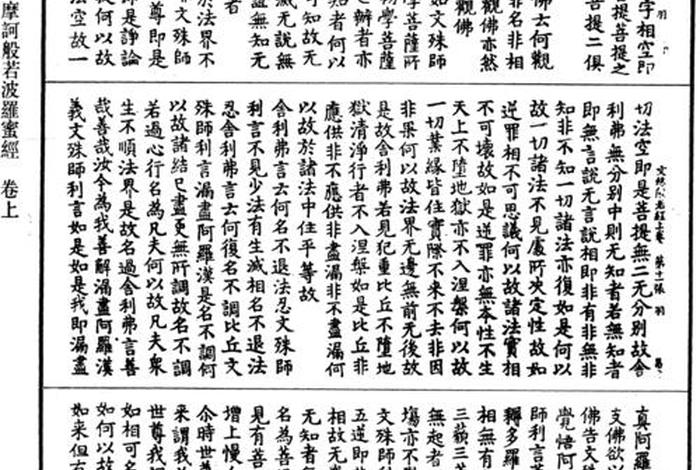 字相空即
提菩提之
菩提二俱
佛云何觀
非名非相
觀佛亦然
觀佛
如文殊師
菩薩所
學菩薩
辦者亦
知者何以
可知故无
滅无說無
甚無知无
者
於法界不
非文殊師
尊即是
即是諍論
從何以故
法空故一
切法空即是菩提無二无分別故舍
利弗無分別中則无知者若無知者
即無言說无言說相即非有非無非
知非不知一切諸法亦復如是何以
故一切諸法不見處所决定性故如
逆罪相不可思議何以故諸法實相
不可壞故如是逆罪亦無本性不生
天上不墮地獄亦不入涅槃何以故
一切業緣皆住實際不来不去非因
非果何以故法界无邊無前无後故
是故舍利弗若見犯重比丘不墮地
獄清淨行者不入涅槃如是比丘非
應供非不應供非盡漏非不盡漏何
以故於諸法中住平等故
舍利弗言云何名不退法忍文殊師
利言不見少法有生滅相名不退法
忍舍利弗言云何復名不調比丘文
殊師利言漏盡阿羅漢是名不調何
以故諸結已盡更無所調故名不調
若過心行名為凡夫何以故凡夫衆
生不順法界是故名過舍利弗言善
哉善哉汝今為我善解漏盡阿羅漢
義文殊師利言如是如是我即漏盡
真阿羅
支佛欲以
佛告文殊
覺悟阿
師利言
耨多羅
相無有
三藐三菩
無起者
亦不
文殊師
五逆即
相故无
無知者
名為善
見有菩
增上慢
尒時世尊
来謂我
世尊我
如相可名
如何以故
如来但
摩訶般若波羅蜜經 卷上